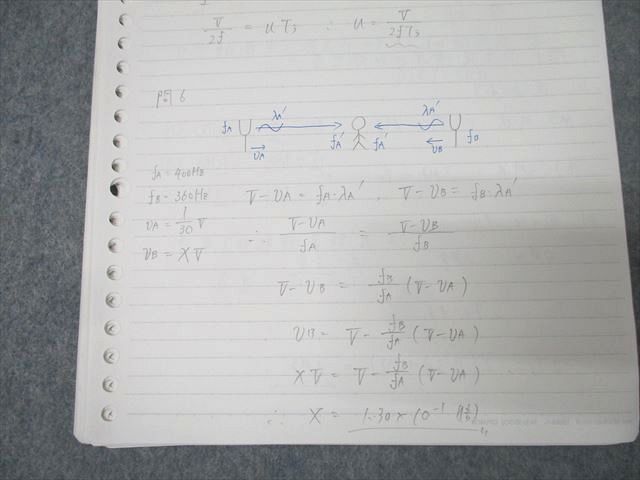 V/2f = uT₃ ∴ u = V/2fT₃
問 6
fA λA' fA' fA' λA' fB
vA vB
fA = 400Hz
fB = 360Hz
vA = 1/30 V
vB = XV
V - vA = fA·λA' , V - vB = fB·λA'
∴ (V - vA)/fA = (V - vB)/fB
V - vB = fB/fA (V - vA)
vB = V - fB/fA (V - vA)
XV = V - fB/fA (V - vA)
∴ X = 1.30 × 10⁻¹ (倍)